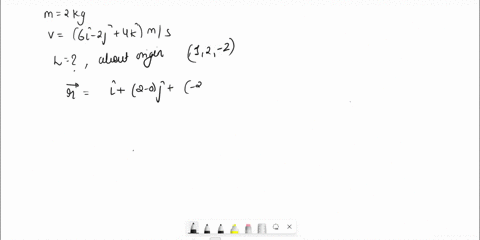 m = 2 kg
v = (6î - 2ĵ + 4k) m/s
L = ?, about origin (1, 2, -2)
r⃗ = î + (2-0)ĵ + (-2